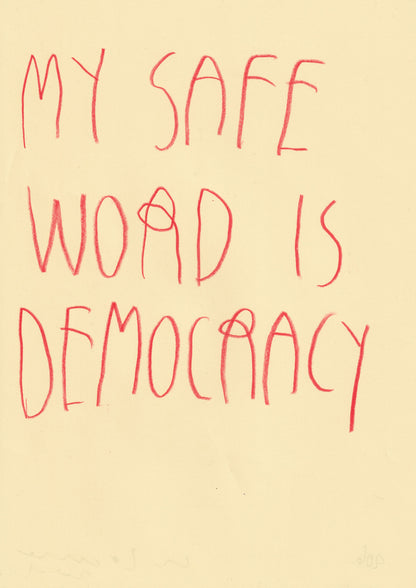 MY SAFE
WORD IS
DEMOCRACY